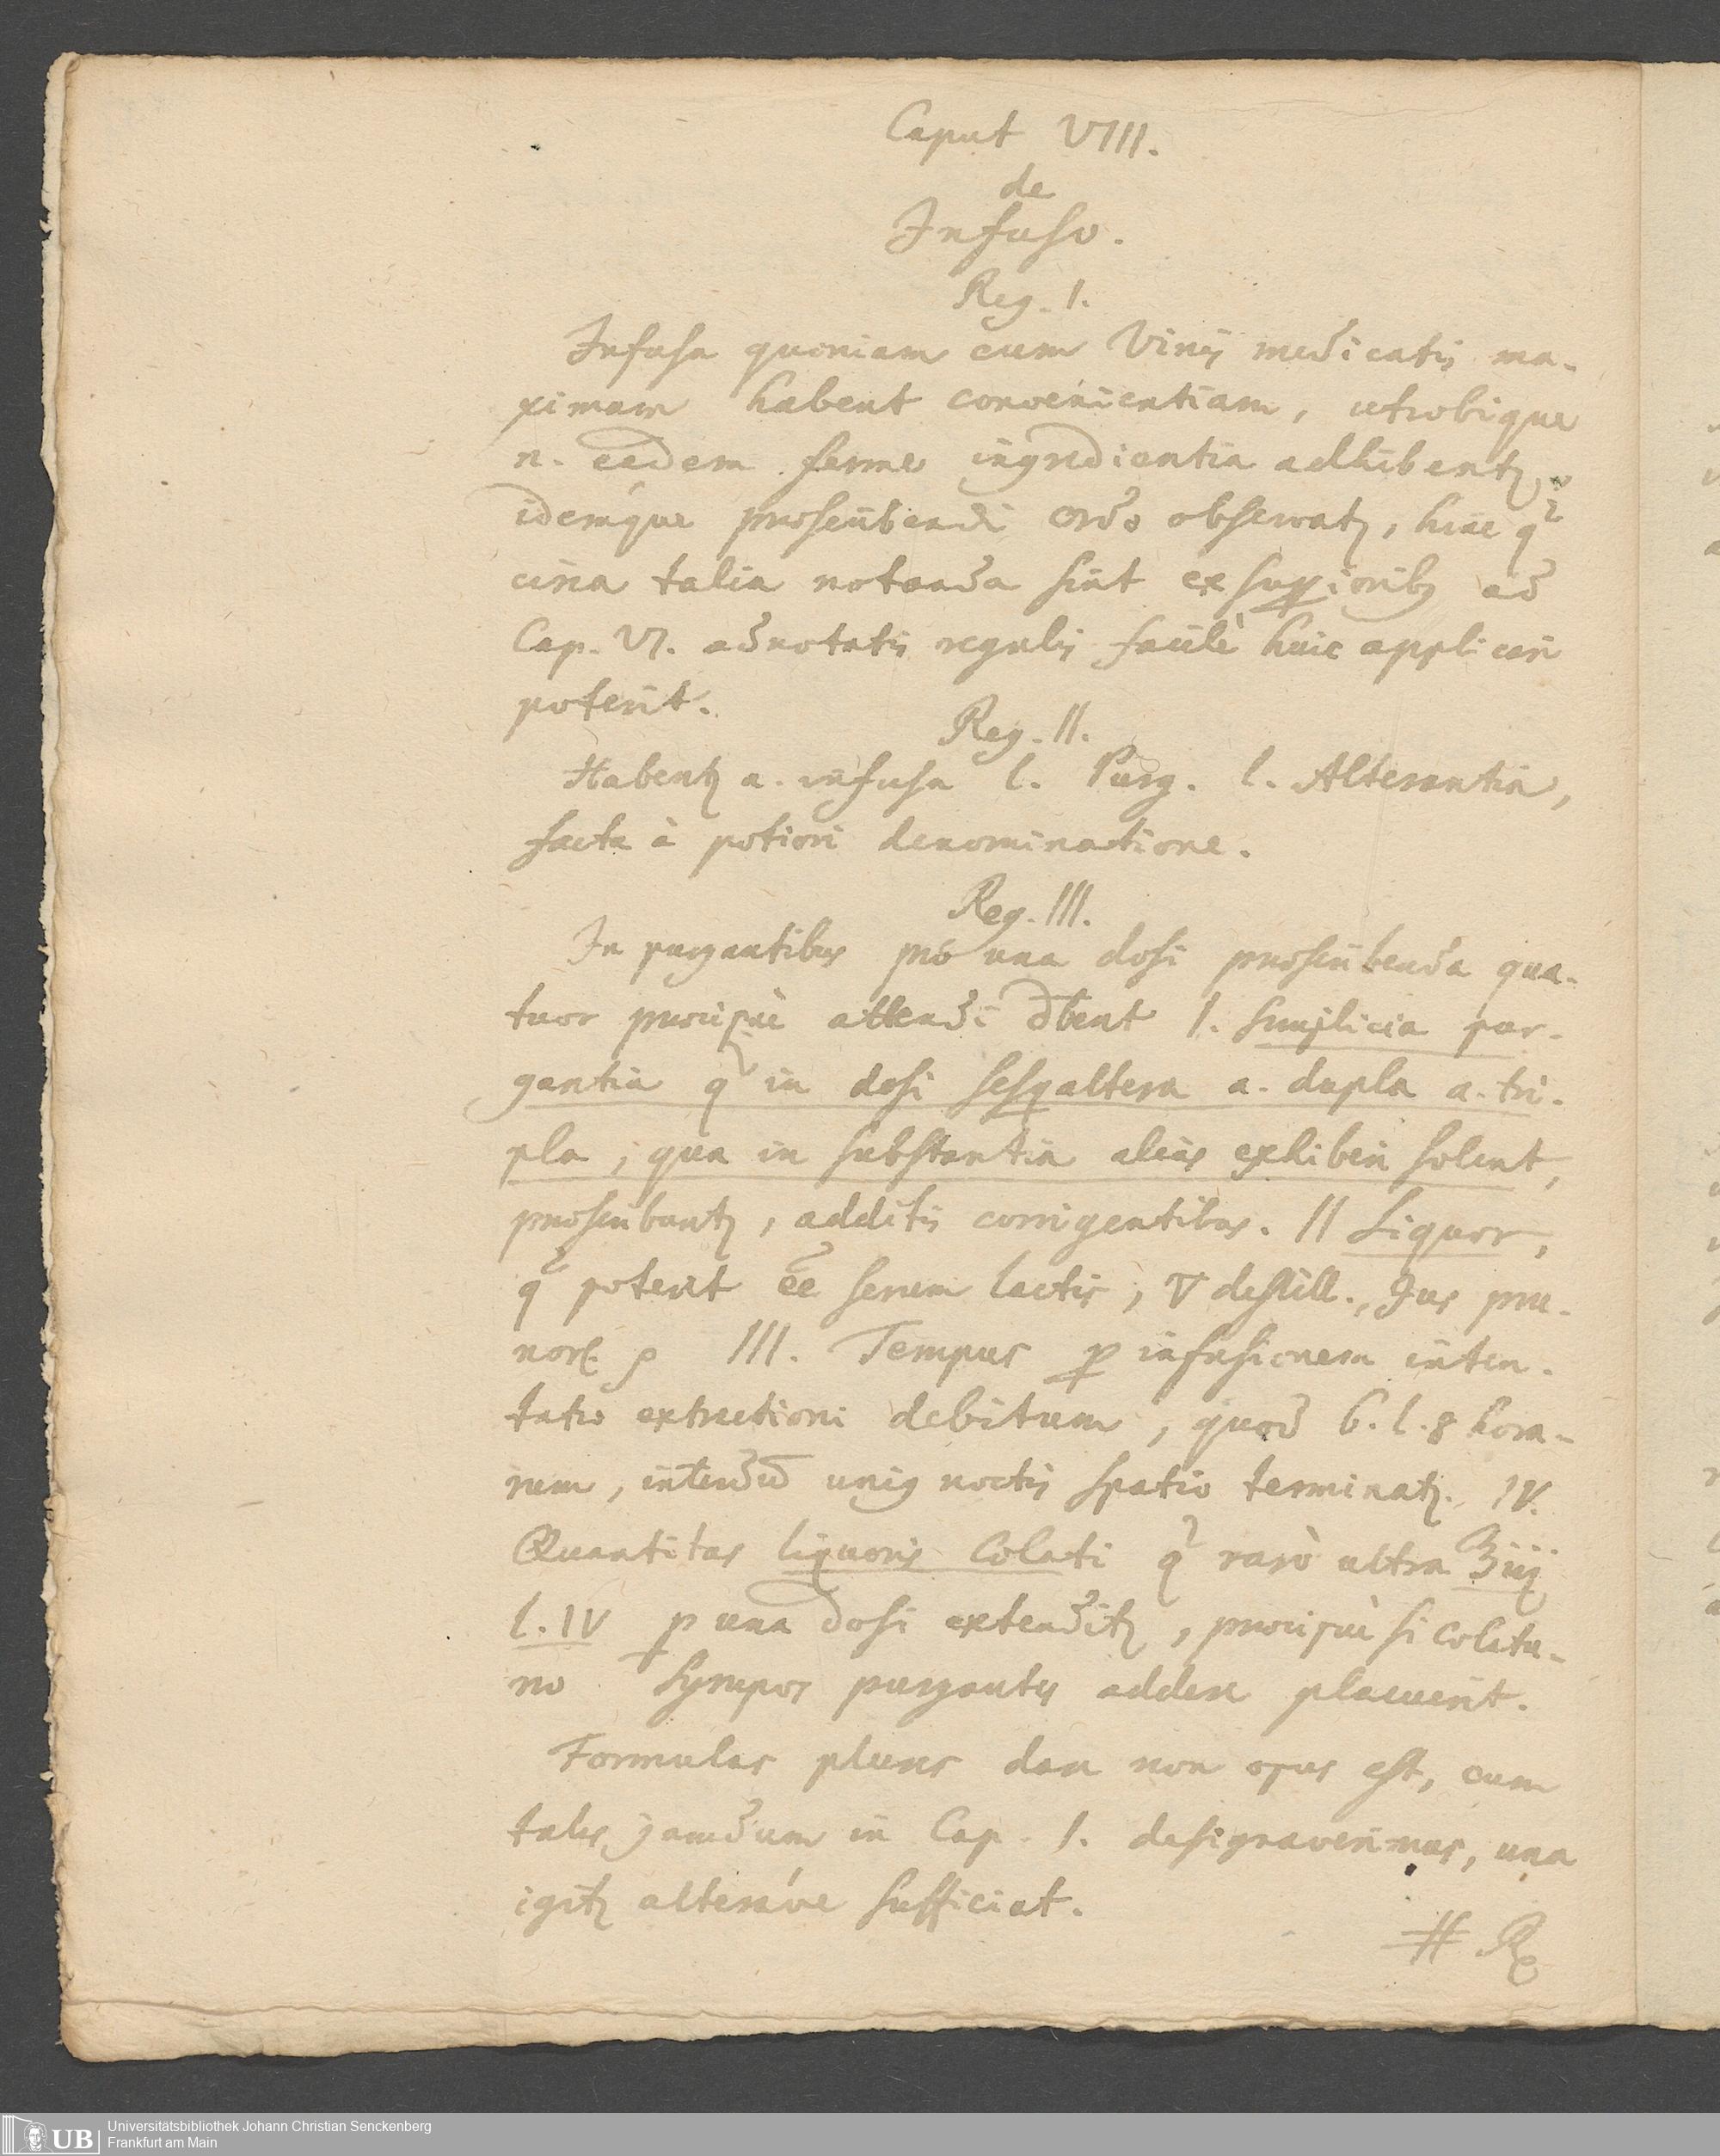 Caput VIII.
de
Infuso.
Reg. I.
Infusa quoniam cum Vinis medicatis ma-
ximam habent convenientiam, utrobique
n. eadem ferme ingredientia adhibentꝫ,
idemque præscribendi ordo observatꝫ, hinc q̃
circa talia notanda sint ex suꝑioribꝫ ad
Cap. VI. adnotatis regulis facilè huic applicari
poterit.
Reg. II.
Habentꝫ a. infusa l. Purg. l. Alterantia,
facta à potiori denominatione.
Reg. III.
In purgantibus pro una dosi præscribenda qua-
tuor præcipuè attendi dbent I. Simplicia pur-
gantia q̃ in dosi sesqaltera a. dupla a. tri-
pla, qua in substantia alias exhiberi solent,
præscribuntꝫ, additis corrigentibus. II Liquor,
q̃ poterit eē serum lactis, ▽ destill., Jus pru-
norꝭ III. Tempus ꝑ infusionem inten-
tatæ extractioni debitum, quod 6. l. 8 hora-
rum, interdū uniꝰ noctis spatio terminatꝫ. IV.
Quantitas liquoris Colati q̃ rarò ultra ℥iij
l. IV p una dosi extenditꝫ, præcipuè si colatu-
ræ Syrupos purgantes addere placuerit.
Formulas plures dare non opus est, cum
tales jamdum in Cap. I. designaverimus, una
igitꝫ alterave sufficiat.
# ℞
Universitätsbibliothek Johann Christian Senckenberg
Frankfurt am Main
UB